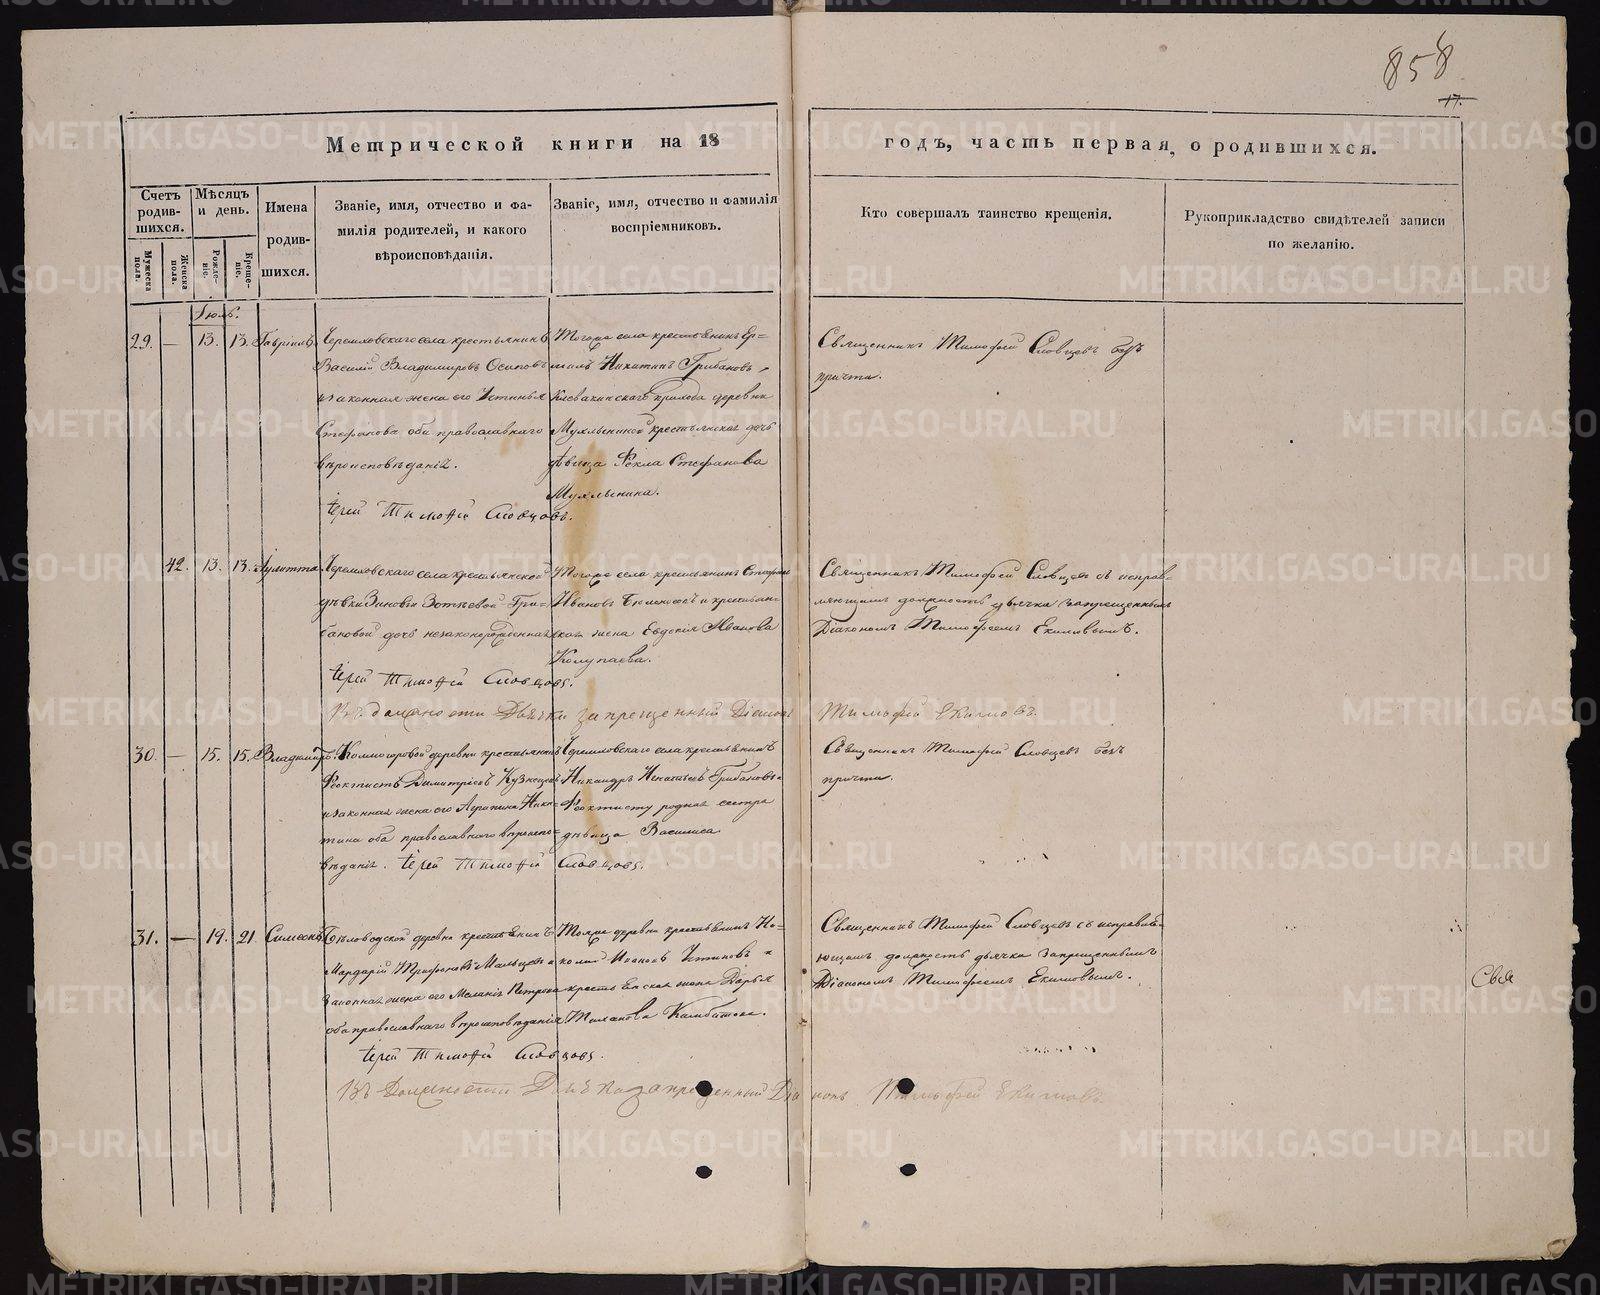 858
17.
Метрической книги на 18
годъ, часть первая, о родившихся.
Счетъ родившихся.
Мужеска пола.
Женска пола.
Мѣсяцъ и день.
Рожденіе.
Крещеніе.
Имена родившихся.
Званіе, имя, отчество и фамилія родителей, и какого вѣроисповѣданія.
Званіе, имя, отчество и фамилія воспріемниковъ.
Кто совершалъ таинство крещенія.
Рукоприкладство свидѣтелей записи по желанію.
Іюль.
29. — 13. 13. Гавріилъ.
Черемховскаго села крестьянинъ
Василій Владимировъ Осиповъ
и законная жена его Устинья
Стефанова оба православнаго
вѣроисповѣданія.
Іерей Тимофей Словцовъ.
Тогоже села крестьянинъ Ер=
милъ Никитинъ Грибановъ,
Клевакинскаго прихода деревни
Мухлыниной крестьянская дочь
дѣвица Фекла Стефанова
Мухлынина.
Священникъ Тимофей Словцевъ безъ
причта.
42. 13. 13. Іулитта.
Черемховскаго села крестьянской
дѣвки Зиновіи Зотѣевой Гри=
бановой дочь незаконнорожденная
Іерей Тимофей Словцовъ.
Въ должности Дьячка запрещенный Діаконъ Тимофей Екимовъ.
Тогоже села крестьянинъ Стефанъ
Ивановъ и крестьян=
ская жена Евдокія Иванова
Колупаева.
Священникъ Тимофей Словцевъ съ исправ=
ляющимъ должность дьячка запрещеннымъ
Діакономъ Тимофеемъ Екимовымъ.
30. — 15. 15. Владимиръ.
деревни крестьянинъ
Феоктистъ Димитріевъ Кузнецовъ
и законная жена его Агрипина Ники=
тина оба православнаго вѣроиспо=
вѣданія. Іерей Тимофей Словцовъ.
Черемховскаго села крестьянинъ
Никандръ Игнатьевъ Грибановъ и
Феоктисту родная сестра
дѣвица Василиса
Священникъ Тимофей Словцевъ безъ
причта.
31. — 19. 21. Симеонъ.
Бѣловодской деревни крестьянинъ
Мардарій Трифоновъ Мальцевъ и
законная жена его Меланія Петрова
оба православнаго вѣроисповѣданія
Іерей Тимофей Словцовъ.
Въ Должности Дьячка запрещенный Діаконъ Тимофей Екимовъ
Тояже деревни крестьянинъ Ни=
колай Ивановъ Устиновъ и
крестьянская жена Дарья
Священникъ Тимофей Словцевъ съ исправля=
ющимъ должность дьячка запрещеннымъ
Діакономъ Тимофеемъ Екимовымъ.
METRIKI.GASO-URAL.RU